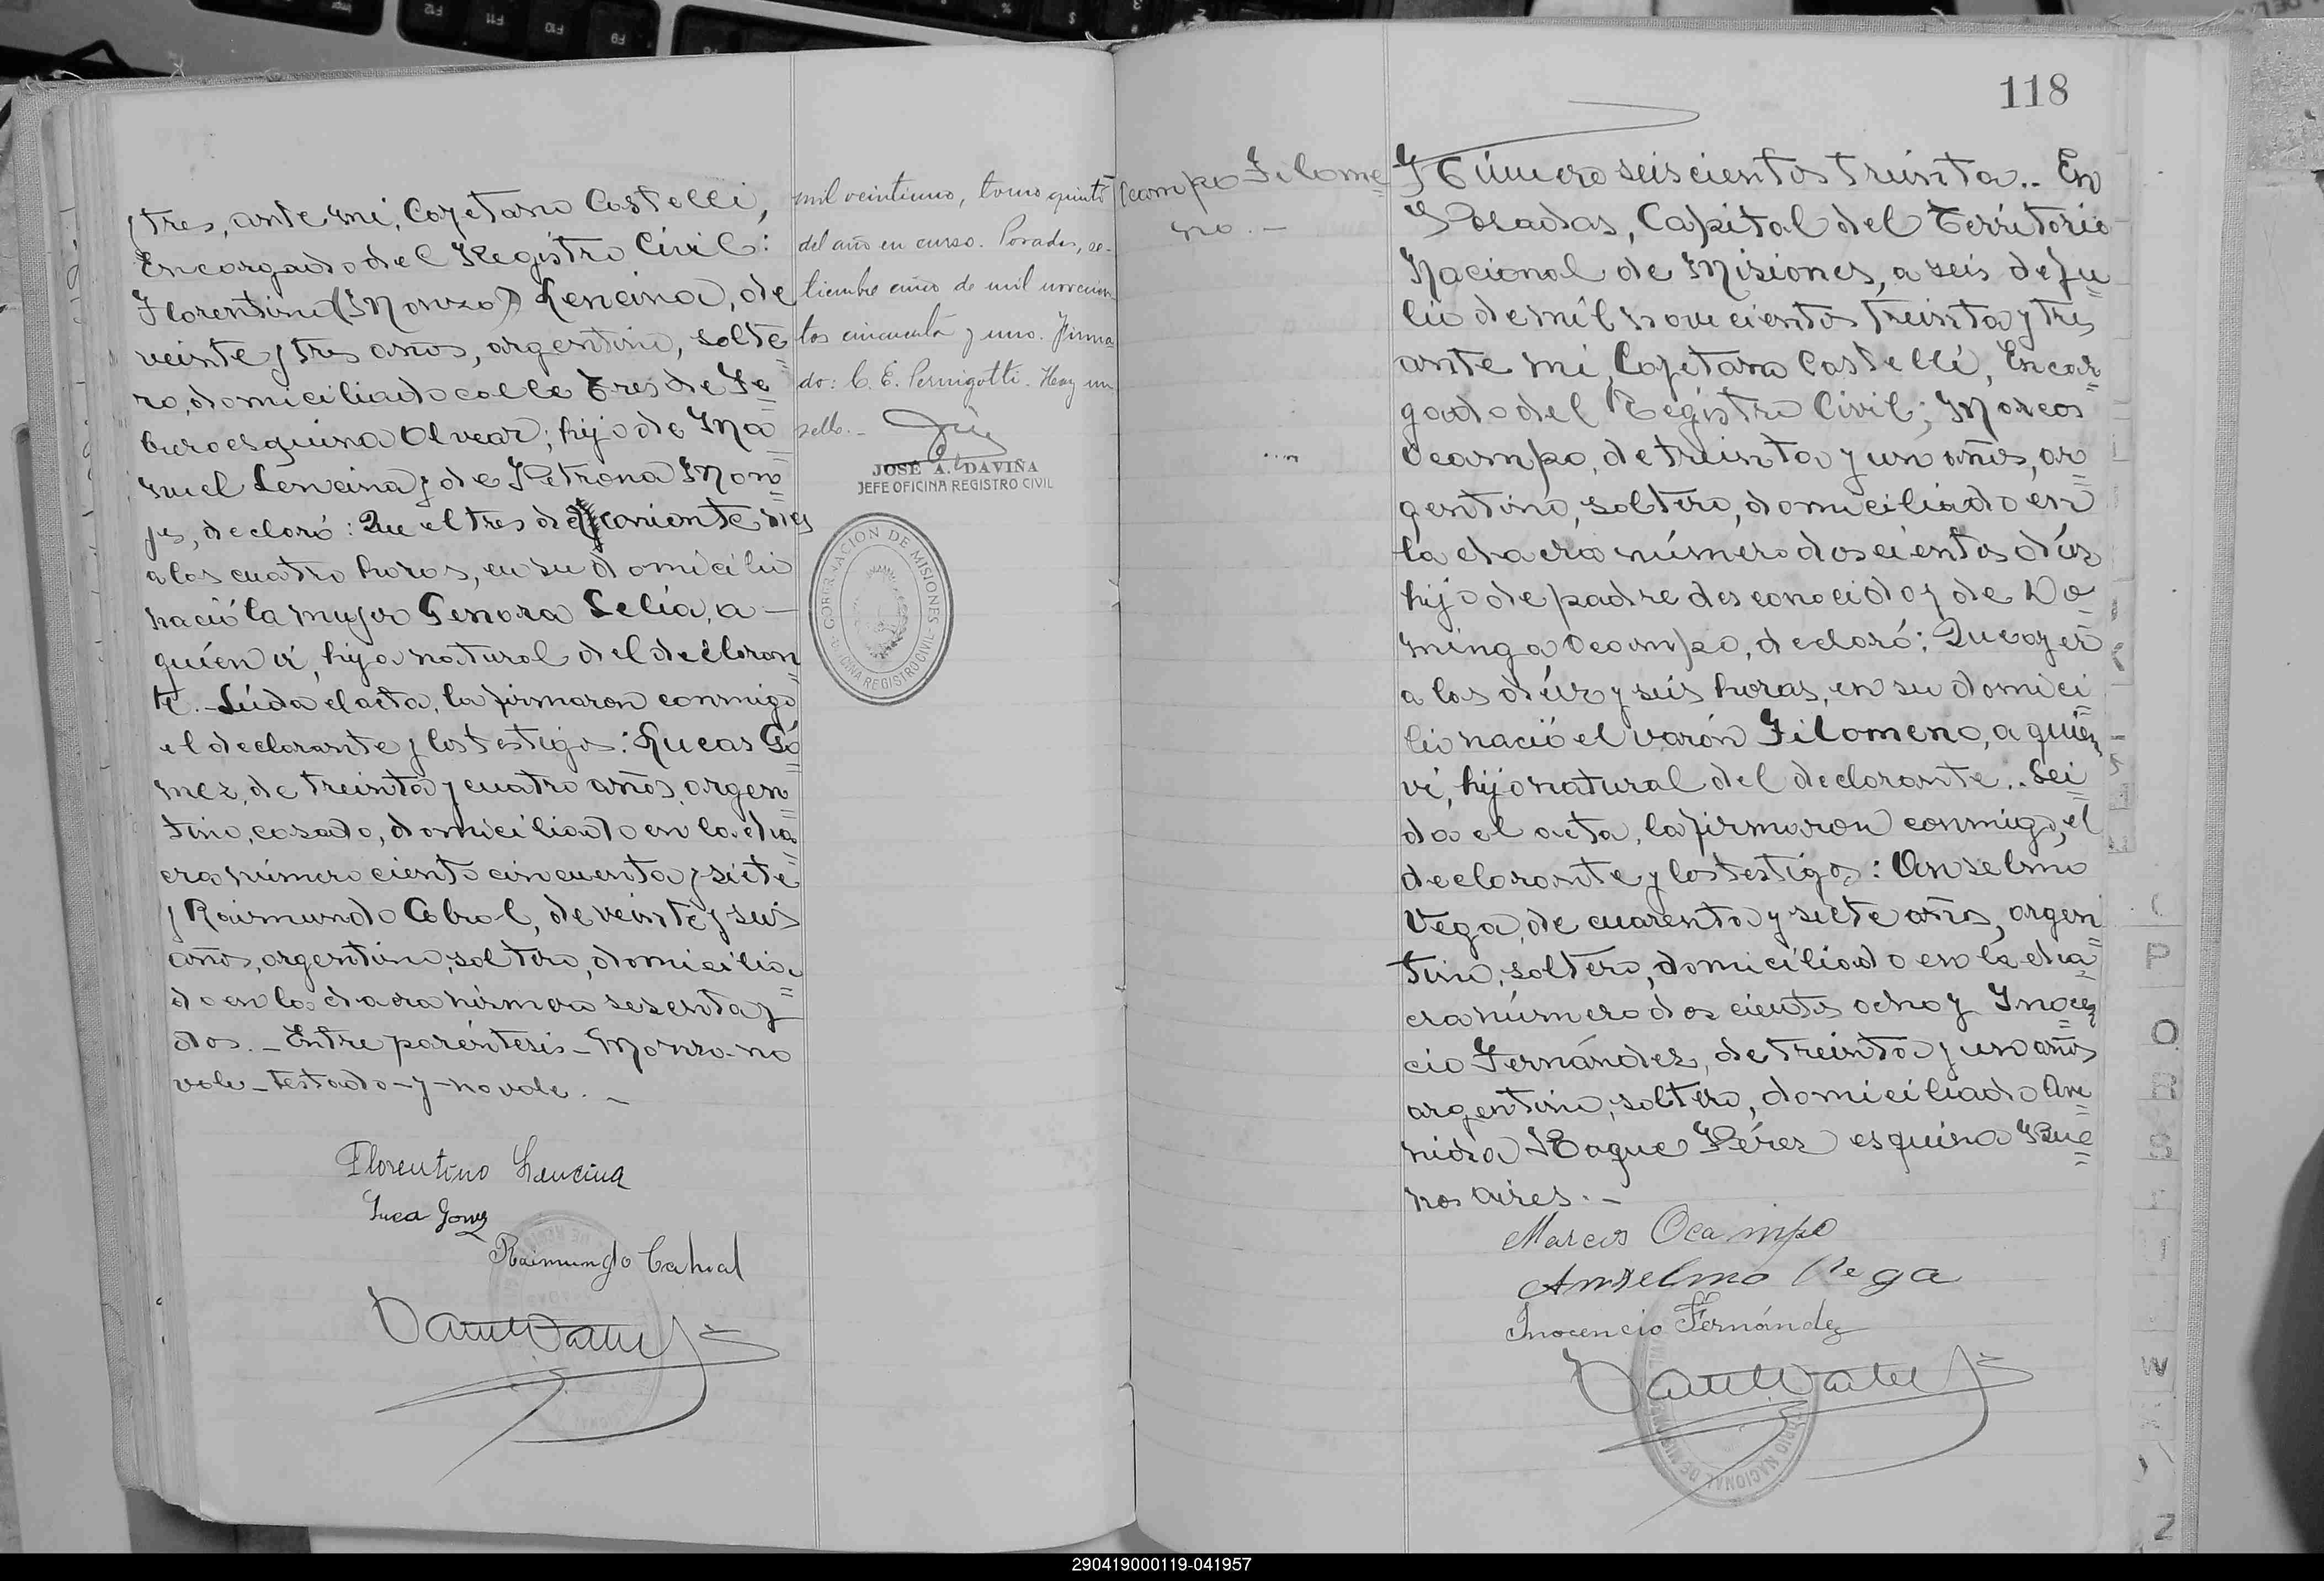 y tres, ante mí, Cayetano Castelli,
Encargado del Registro Civil:
Florentino (Monzo) Lencina, de
veinte y tres años, argentino, solte=
ro, domiciliado calle Tres de Fe=
brero esquina Alvear; hijo de Ma=
nuel Lencina y de Petrona Mon=
jes, declaró: Que el tres del corriente mes
a las cuatro horas, en su domicilio
nació la mujer Genora Lelia, a
quién ví, hija natural del declaran=
te. - Leída el acta, la firmaron conmigo
el declarante y los testigos: Lucas Gó=
mez, de treinta y cuatro años, argen=
tino, casado, domiciliado en la cha=
cra número ciento cincuenta y siete
y Raimundo Cabral, de veinte y seis
años, argentino, soltero, domicilia=
do en la chacra número sesenta y
dos. - Entre paréntesis - Monzo - no
vale - testado - y - no vale. -
Florentino Lencina
Luca Gomez
Raimundo Cabral
mil veintiuno, tomo quinto
del año en curso. Posadas, se-
tiembre cinco de mil novecien-
tos cincuenta y uno. Firma-
do: C. E. Pernigotti. Hay un
sello. -
JOSÉ A. DAVIÑA
JEFE OFICINA REGISTRO CIVIL
GOBERNACION DE MISIONES
OFICINA REGISTRO CIVIL
118
Ocampo Filome=
no. -
Número seiscientos treinta.. En
Posadas, Capital del Territorio
Nacional de Misiones, a seis de Ju=
lio de mil novecientos treinta y tres
ante mí, Cayetano Castelli, Encar=
gado del Registro Civil; Marcos
Ocampo, de treinta y un años, ar=
gentino, soltero, domiciliado en
la chacra número doscientos diez
hijo de padre desconocido y de Do=
minga Ocampo, declaró: Que ayer
a las diez y seis horas, en su domici=
lio nació el varón Filomeno, a quién
ví, hijo natural del declarante.. Leí=
da el acta, la firmaron conmigo, el
declarante y los testigos: Anselmo
Vega, de cuarenta y siete años, argen=
tino, soltero, domiciliado en la cha=
cra número doscientos ocho y Inocen=
cio Fernández, de treinta y un años
argentino, soltero, domiciliado Ave=
nida Roque Pérez esquina Bue=
nos Aires. -
Marcos Ocampo
Anselmo Vega
Inocencio Fernández
P
O
R
S
W
Z
290419000119-041957